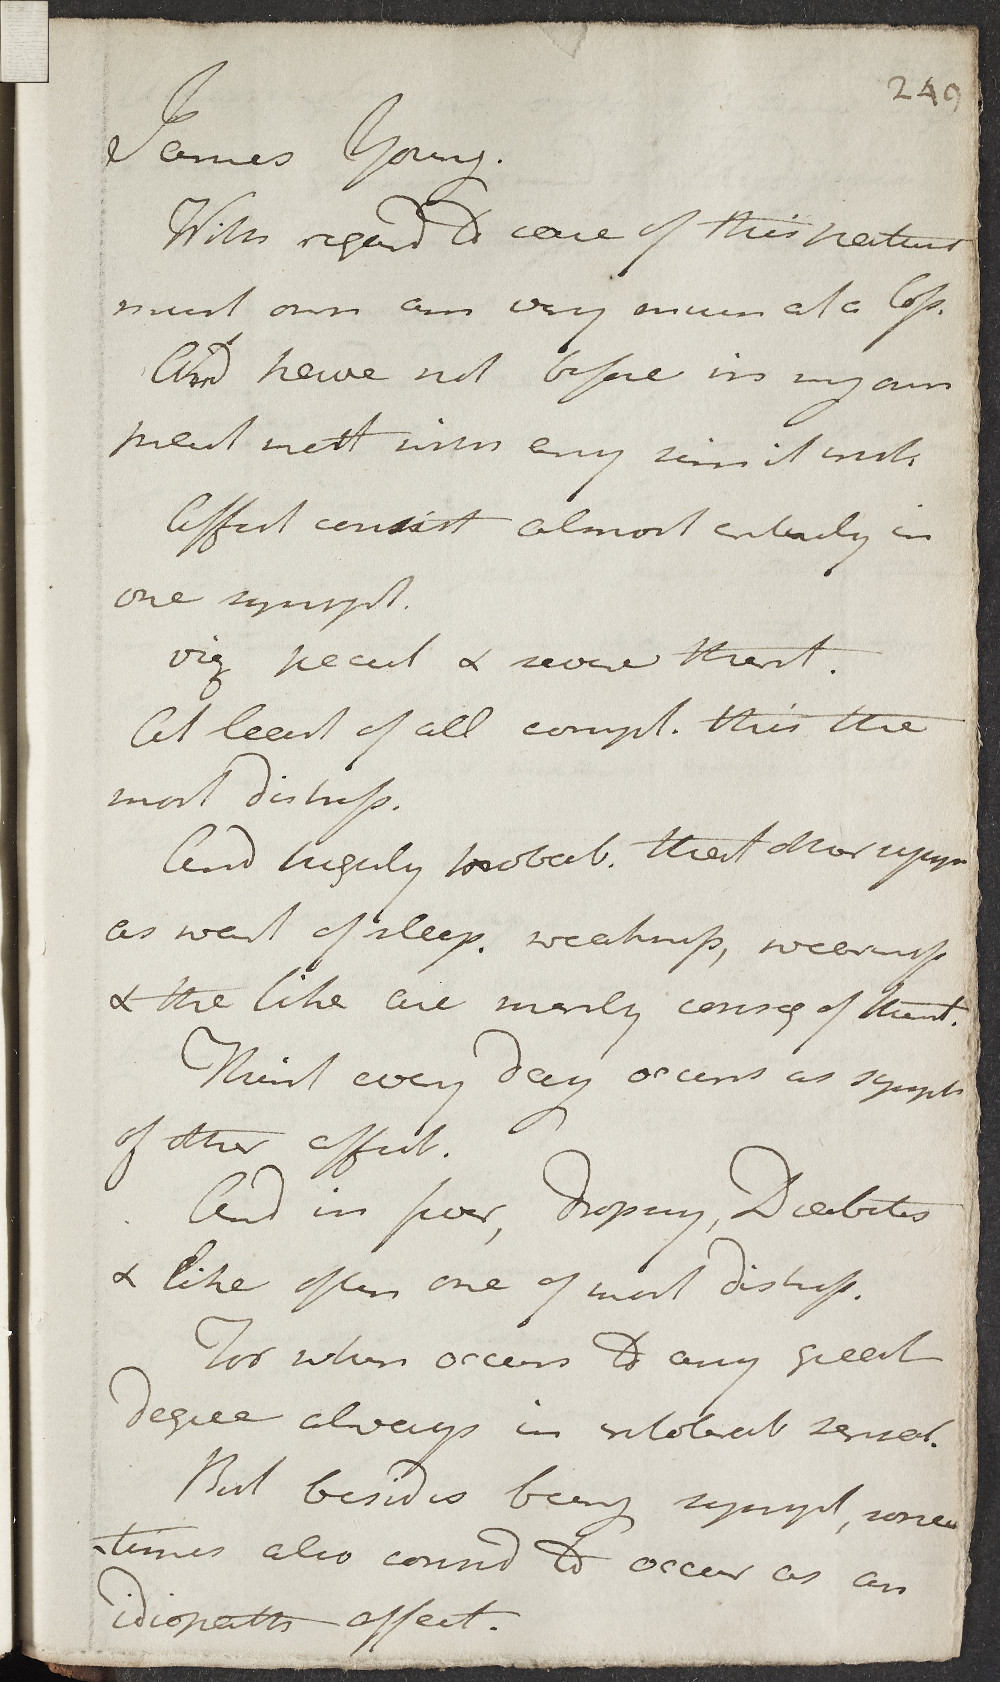 249
James Young.
With regard to case of this nature
must own am very much at a loss.
And have not before in my own
pract mett with any similar inst.
Affect consist almost entirely in
one sympt.
viz pecul & severe thirst.
At least of all compl. this the
most distress.
And highly probab. that other symp
as want of sleep. weakness, weariness
& the like are merely conseq of thirst.
Thirst every day occurs as sympt
of other affect.
And in fever, Dropsy, Diabetes
& like often one of most distress.
For when occurs to any great
degree always an intolerab sensat.
But besides being sympt, some
times also consid to occur as an
idiopath affect.